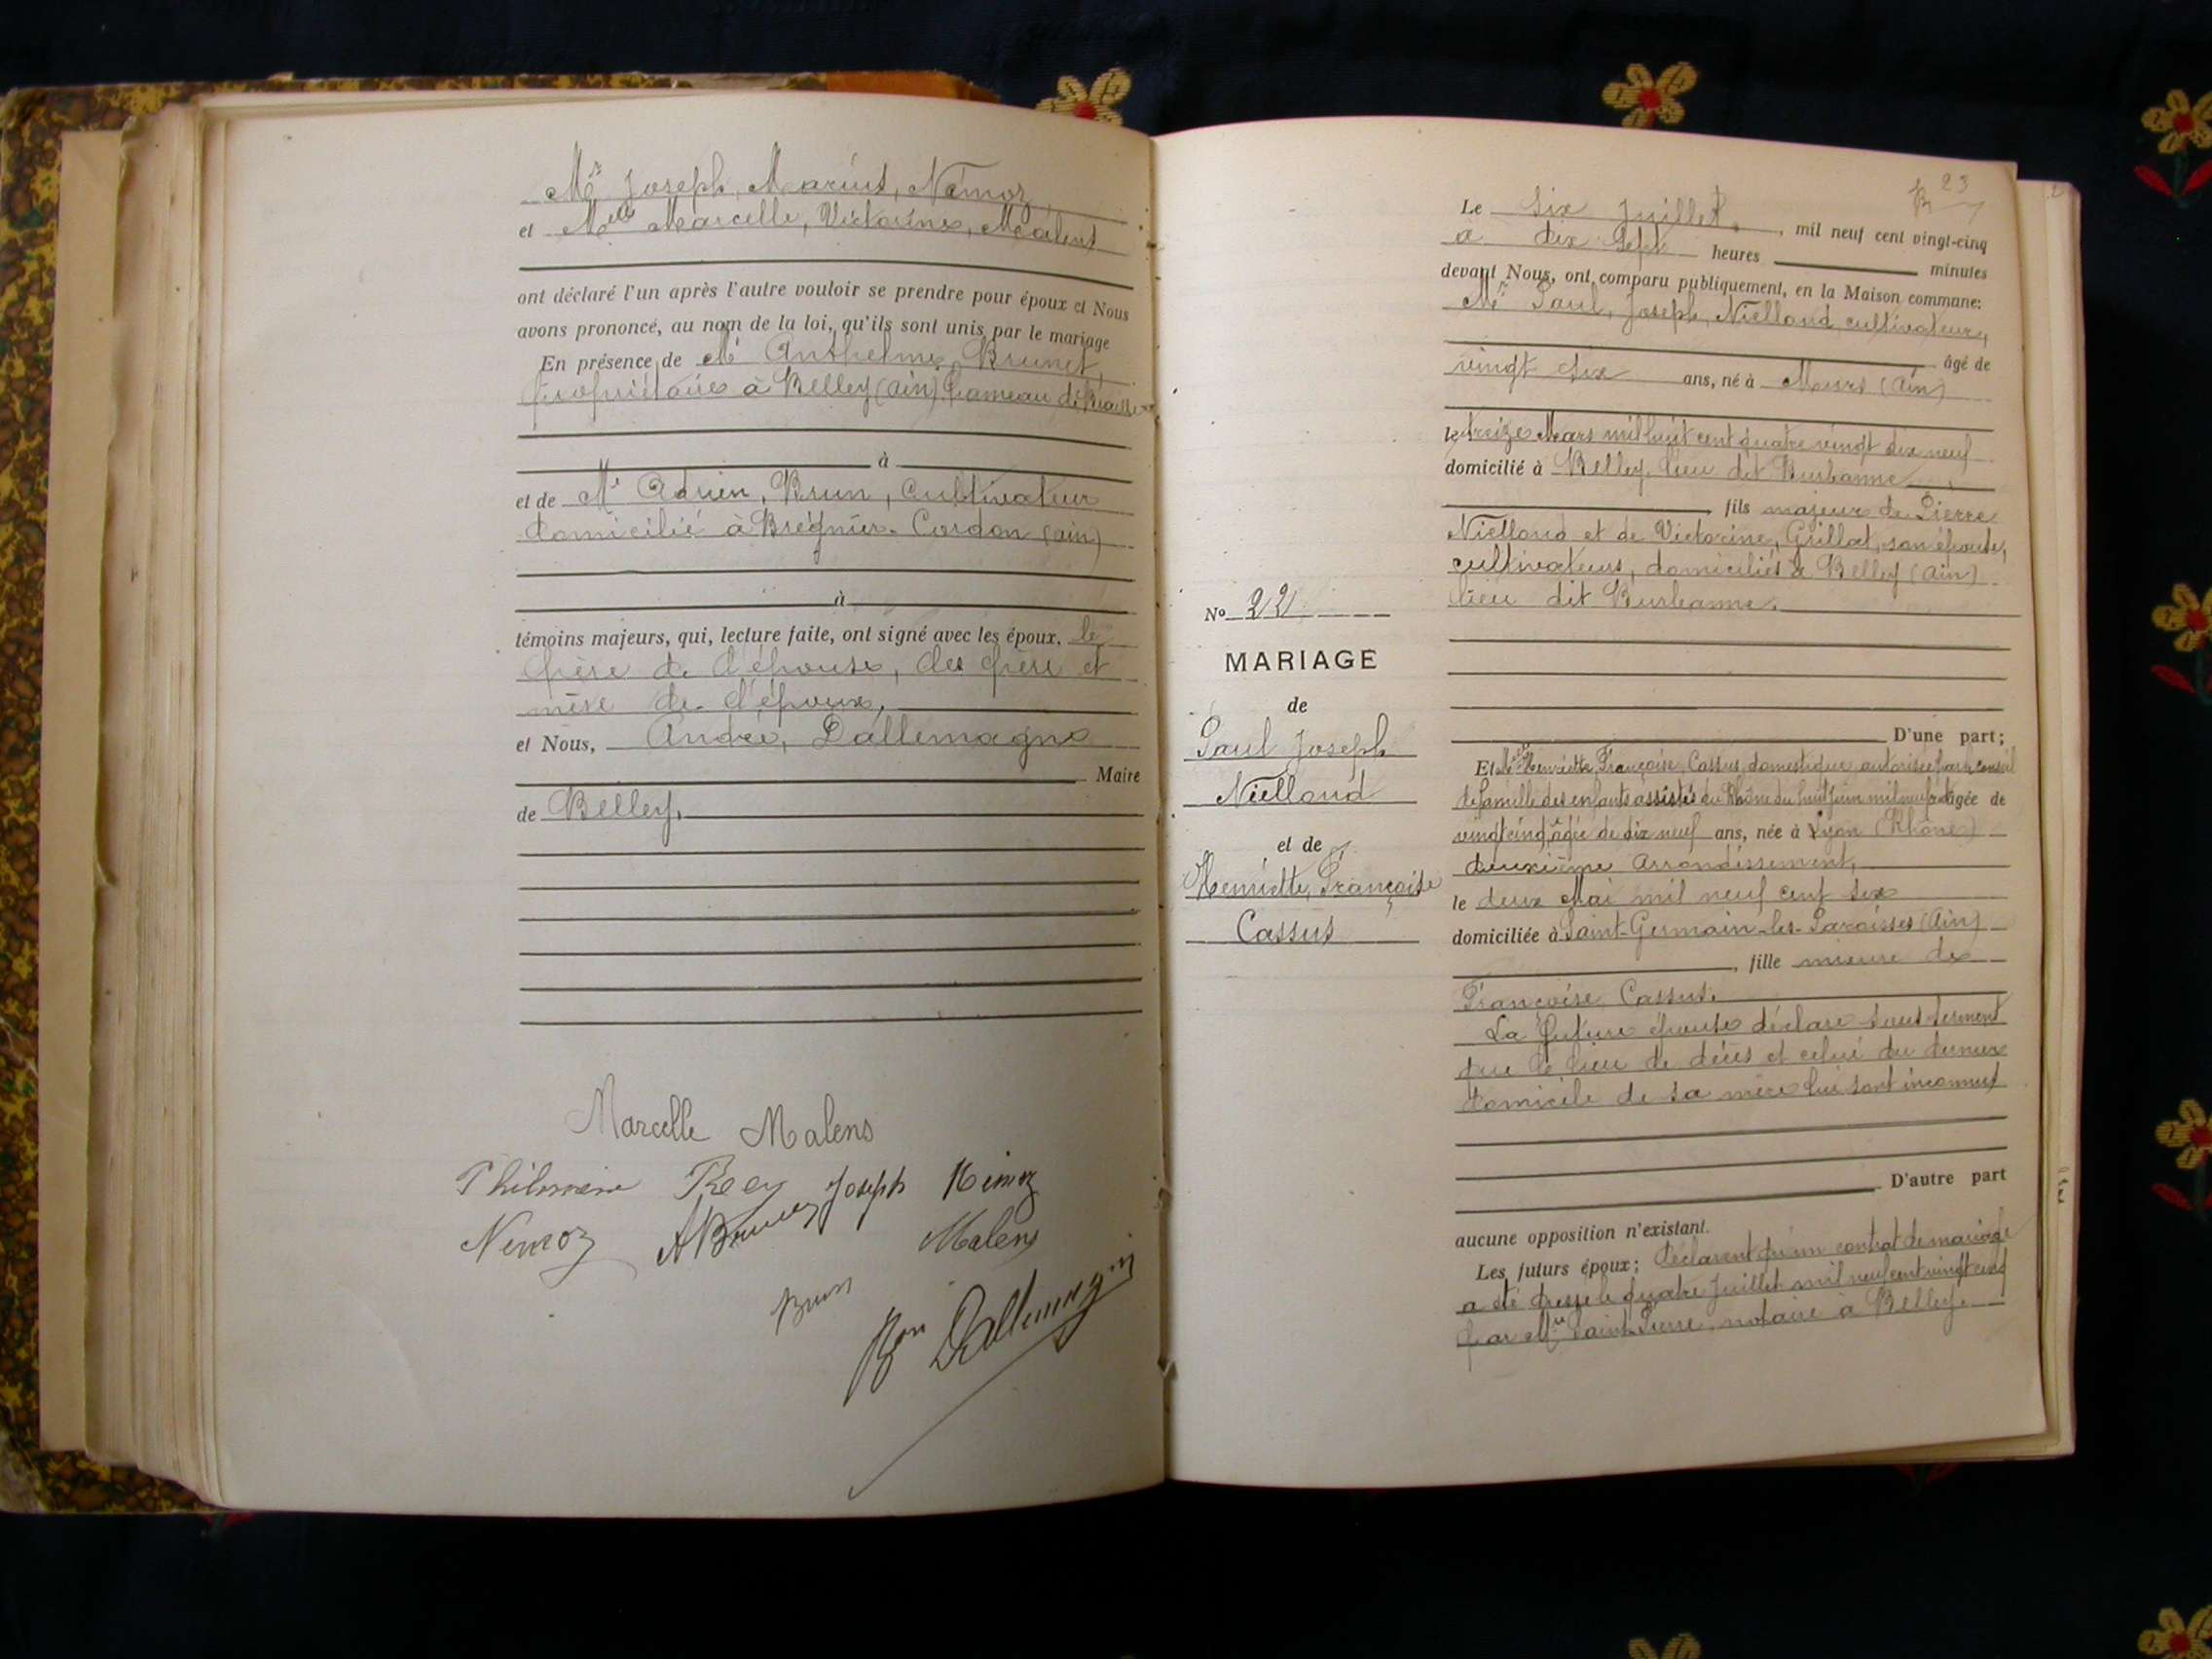 Mr Joseph, Marius, Némoz
et Melle Marcelle, Victorine, Malens
ont déclaré l'un après l'autre vouloir se prendre pour époux et Nous
avons prononcé, au nom de la loi, qu'ils sont unis par le mariage
En présence de Mr Anthelme Brunet,
propriétaire à Belley (Ain) hameau de
à
et de Mr Adrien, Brun, Cultivateur
domicilié à Brégnier-Cordon (ain)
à
témoins majeurs, qui, lecture faite, ont signé avec les époux, le
père de l'épouse, les père et
mère de l'époux,
et Nous, André, Dallemagne
Maire
de Belley.
Marcelle Malens
Philomène Rey Joseph Némoz
Nemoz ABrunet Malens
Brun
Bon Dallemagne
23
Le Six Juillet, mil neuf cent vingt-cinq
à dix Sept heures minutes
devant Nous, ont comparu publiquement, en la Maison commune:
Mr Paul, Joseph, Nielloud cultivateur,
âgé de
vingt six ans, né à Murs (Ain)
le treize Mars mil huit cent quatre vingt dix neuf
domicilié à Belley, lieu dit Burbanne
fils majeur de Pierre
Nielloud et de Victorine, Grillot, son épouse,
cultivateurs, domiciliés à Belley (Ain)
lieu dit Burbanne.
No 22
MARIAGE
de
Paul Joseph
Nielloud
et de
Henriette, Françoise
Cassus
D'une part;
Et Melle Henriette, Françoise, Cassus, domestique, autorisée par le conseil
de famille des enfants assistés du Rhône du huit Juin mil neuf cent âgée de
vingt cinq âgée de dix neuf ans, née à Lyon (Rhône)
deuxième Arrondissement,
le deux Mai mil neuf cent six
domiciliée à Saint-Germain-les-Paroisses (Ain)
, fille mineure de
Françoise Cassus.
La future épouse déclare sous serment
que le lieu de décès et celui du dernier
domicile de sa mère lui sont inconnus
D'autre part
aucune opposition n'existant.
Les futurs époux; déclarent qu'un contrat de mariage
a été dressé le quatre Juillet mil neuf cent vingt cinq
par Me Saint-Pierre, notaire à Belley.